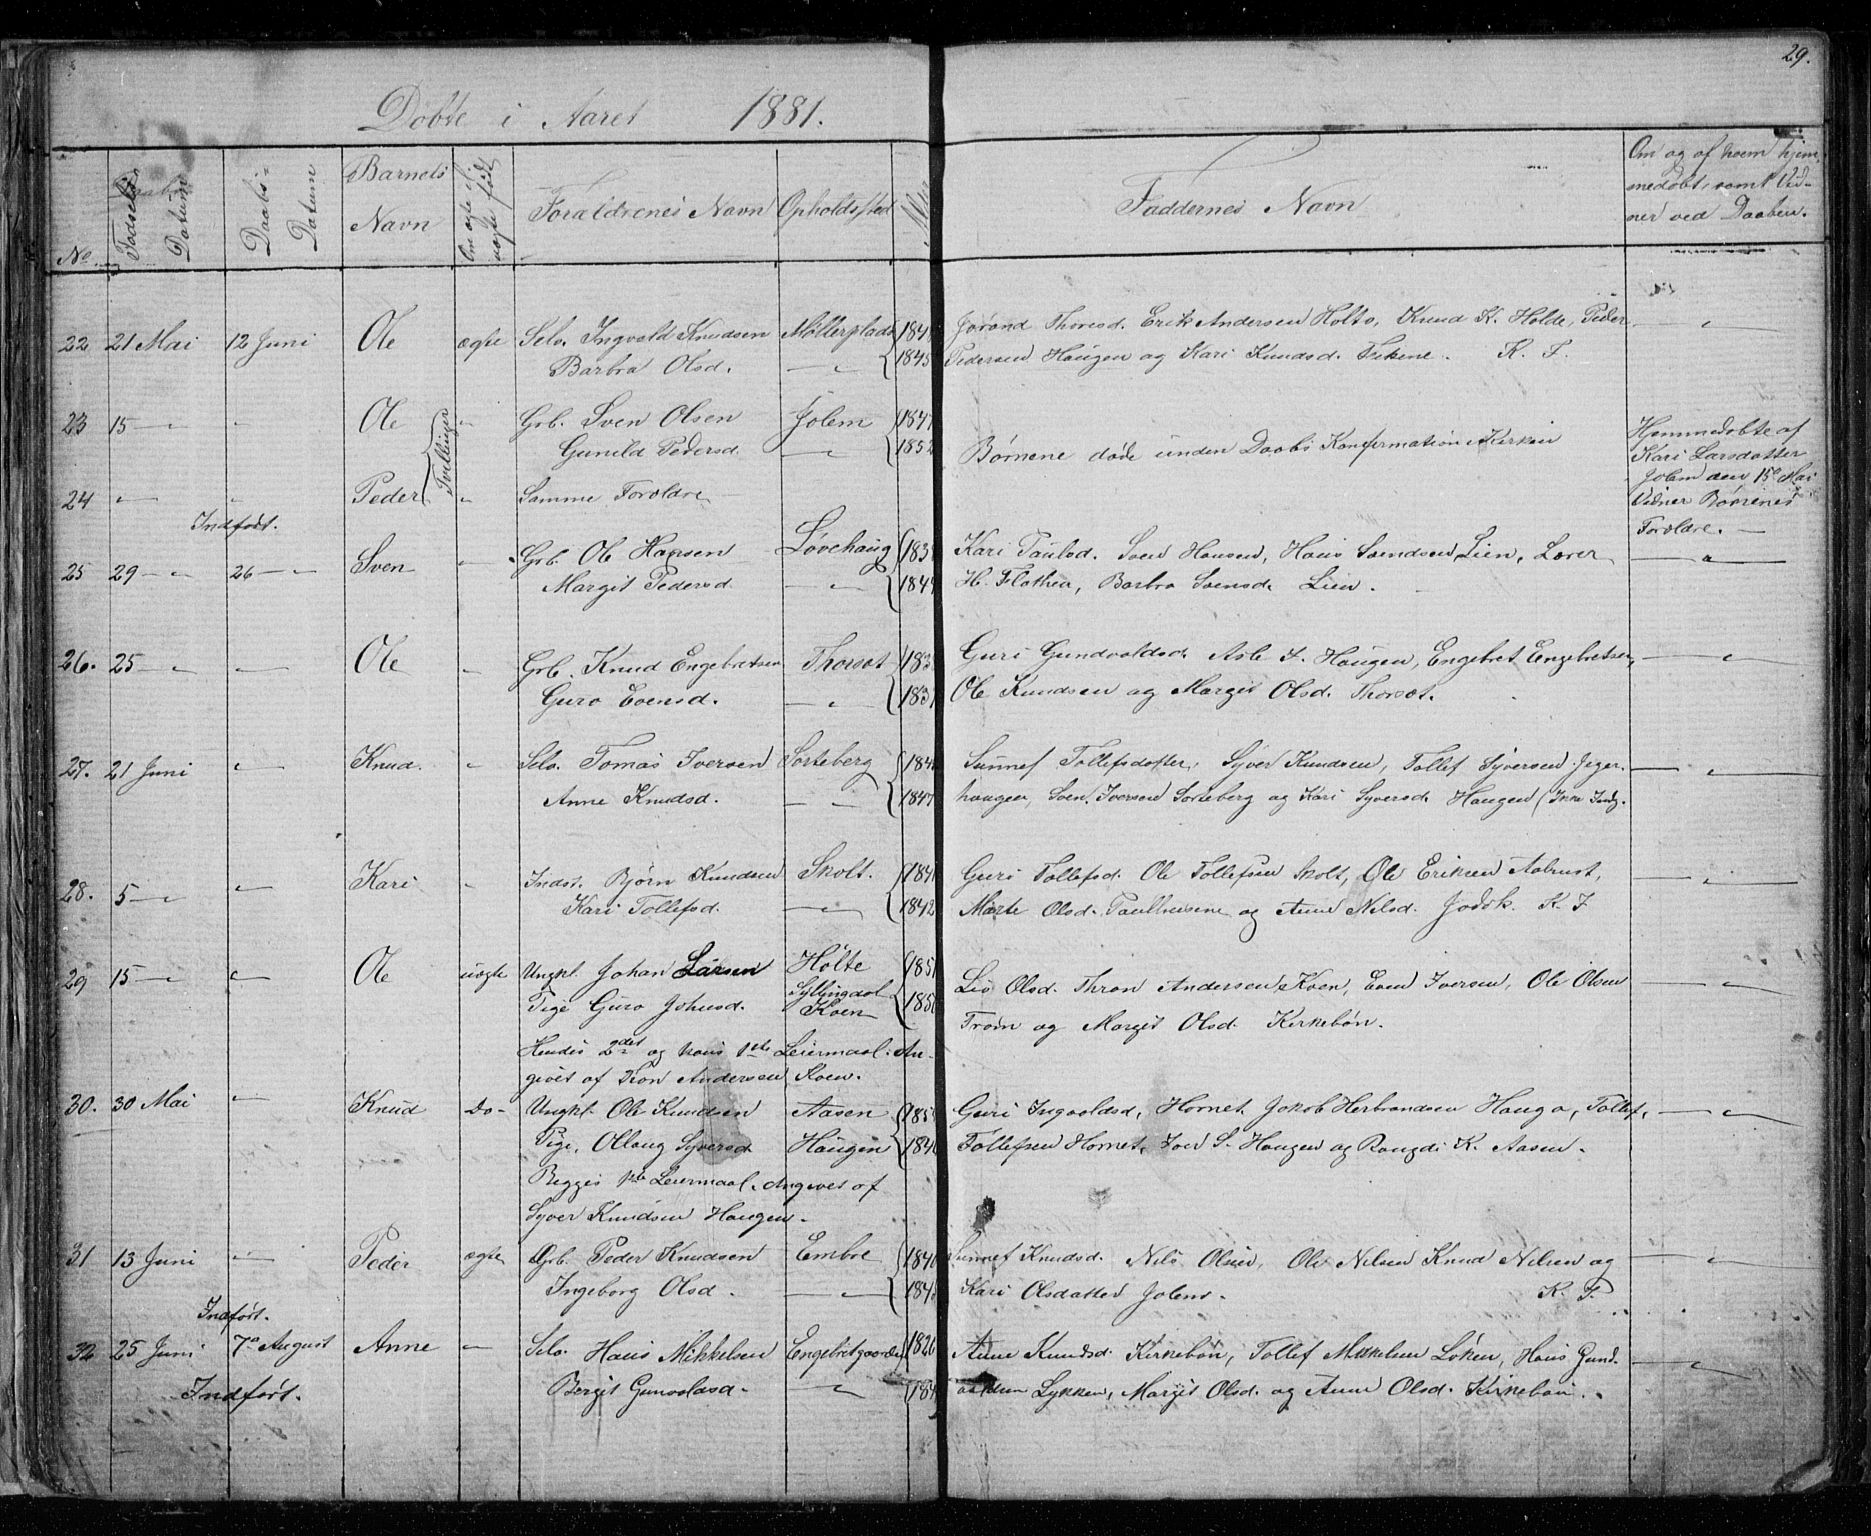 29.
Döbte i Aaret 1881.
No
Födsels-Datum
Daabs-Datum
Barnets Navn
Om ægte el. uægte föd
Forældrenes Navn
Opholdssted
Alder
Faddernes Navn
Om og af hvem hjem-
medöbt, samt Vid-
ner ved Daaben.
22 21 Mai 12 Juni Ole ægte Selv. Ingvald Knudsen Möllerplads Jörand Thoresd. Erik Andersen Holto, Knud K. Holde, Peder
Barbra Olsd. 1845 Pedersen Haugen og Kari Knudsd. K. F.
23 15 Ole Tvillinger Grb. Sven Olsen Jolem 1847
Gunild Pedersd. 1852 Börnene döde under Daabs Konfirmation i Kirken
Hjemmedöbte af
Kari Larsdatter
Jolem den 15de Mai
Vidner Börnenes
Forældre.
24 Peder Samme Forældre
Indfört.
25 29 26 Sven Grb. Ole Hansen Lövehaug Kari Paulsd. Sven Hansen, Hans Svendsen Lien, Lærer
Margit Pedersd. H. Flathen, Barbra Svensd. Lien.
26. 25 Ole Grb. Knud Engebretsen Thorsæt Guri Gundvaldsd. Asle S. Haugen, Engebret Engebretsen,
Guro Evensd. Ole Knudsen og Margit Olsd. Thorsæt.
27. 21 Juni Knud. Selv. Tomas Iversen Sorteberg Sunnef Tollefsdatter, Syver Knudsen, Tollef Syversen Jeger-
Anne Knudsd. 1847 haugen, Sven Iversen Sorteberg og Kari Syversd. Haugen (Ikke Indg.
28. 5 Kari Inds. Björn Knudsen Skolt. Guri Tollefsd. Ole Tollefsen Skolt, Ole Eriksen Aabrust,
Kari Tollefsd. 1842 Marte Olsd. Paulhusene og Anne Nilsd. K. F.
29 15 Ole uægte Ungkl. Johan Larsen Holte Liv Olsd. Thron Andersen Koen, Even Iversen, Ole Olsen
Pige Guro Johnsd. Syllingdal Koen Tröin og Margit Olsd. Kirkebön.
Hendes 2det og hans 1ste Leiermaal. An-
givet af Tron Andersen Koen.
30. 30 Mai Knud Do- Ungkl. Ole Knudsen Aasen Guri Ingvoldsd. Hornet, Jakob Herbrandsen Hauga, Tollef
Pige, Ollaug Syversd. Haugen Tollefsen Hornet, Iver S. Haugen og Rangdi K. Aasen.
Begges 1ste Leiermaal. Angivet af
Syver Knudsen Haugen.
31 13 Juni Peder ægte Grb. Peder Knudsen Embre Sunnef Knudsd. Nils Olsen, Ole Nilsen Knud Nilsen og
Ingeborg Olsd. Kari Olsdatter Jolem. K. F.
Indfört.
32 25 Juni 7de August Anne Selv. Hans Mikkelsen Engebretgaarden 1826 Anne Knudsd. Kirkebön, Tollef Mikkelsen Löken, Hans Gund-
Bergit Gunvaldsd. valdsen Lykken, Margit Olsd. og Anne Olsd. Kirkebön.
Indfört.